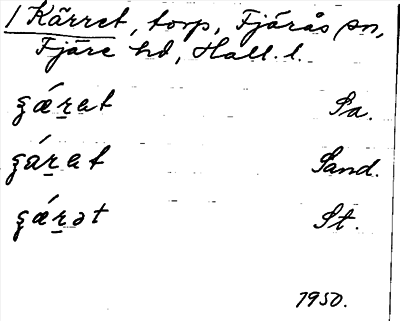 1 Kärret, torp, Fjärås sn,
Fjäre hd, Hall. l.
ʂǽr̲at Sa.
ʂár̲at Sand.
ʂǽr̲ət St.
1950.